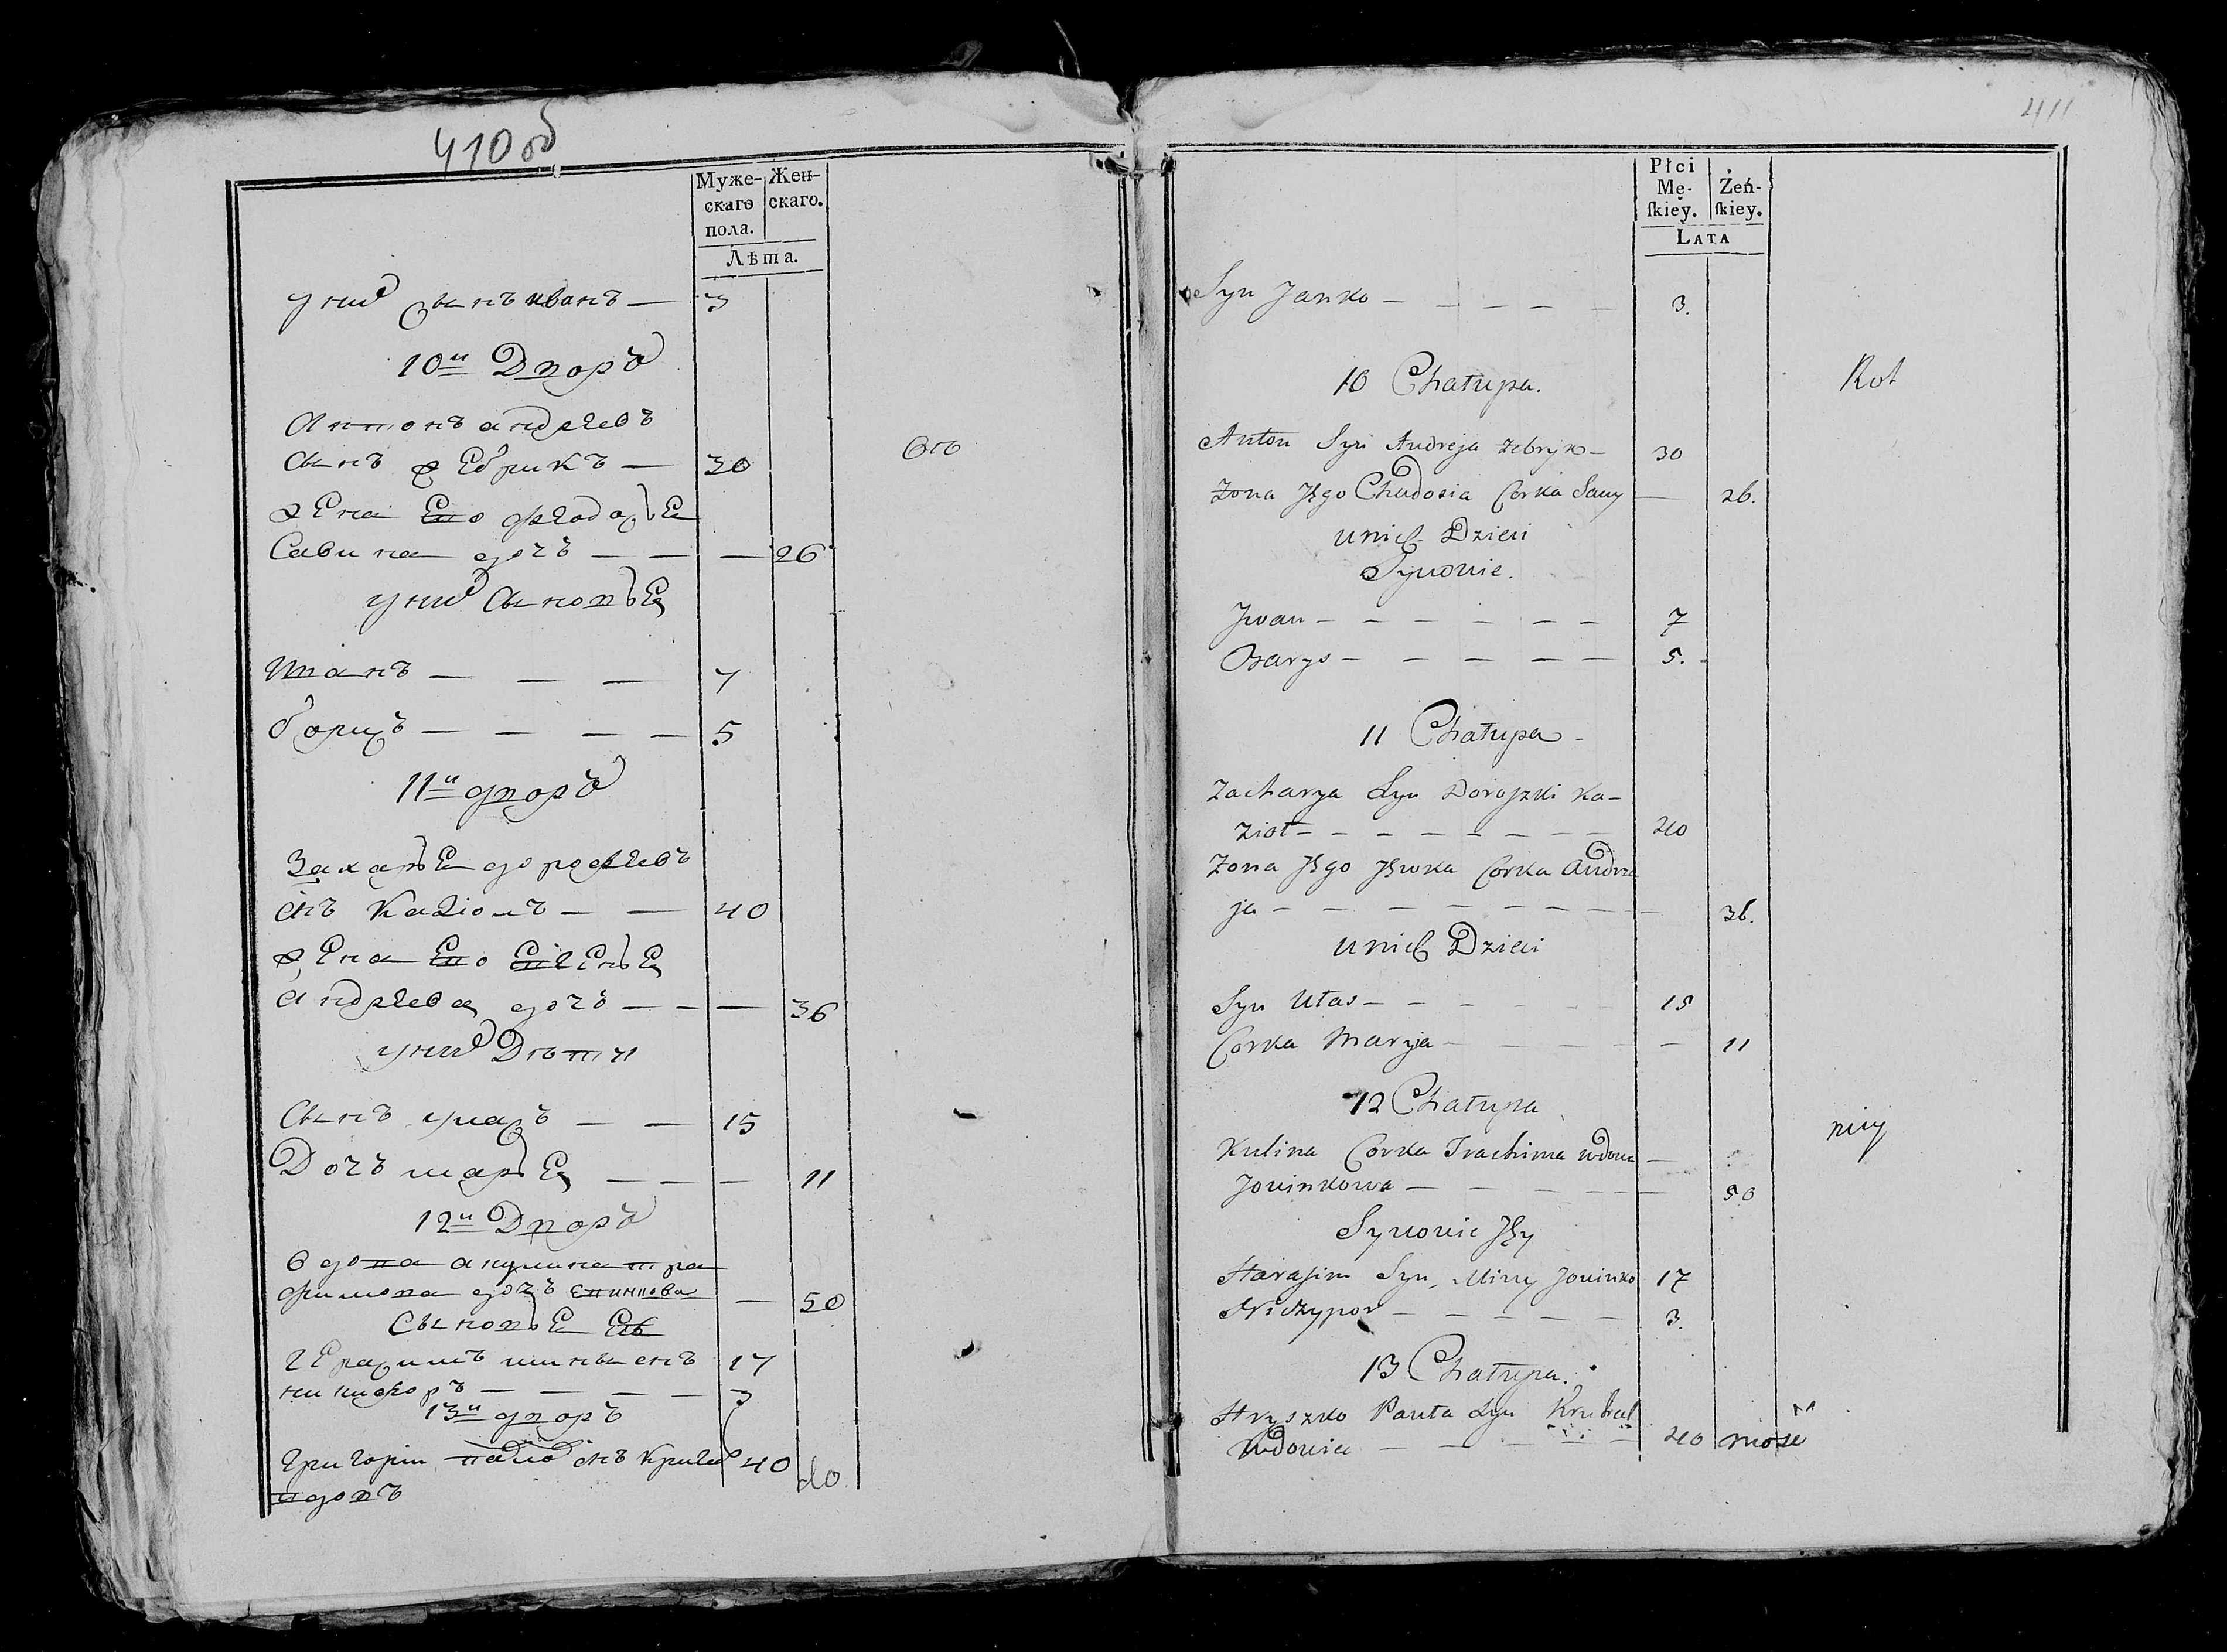 410 об
Муже- Жен-
скаго скаго.
пола.
Лѣта.
у них сынъ иванъ — 3
10й Дворъ
Антонъ андреевъ
сынъ жебрикъ — 30
жена его федосья
Савина дочь — — — 26
у них сыновья
иванъ — — — 7
борисъ — — — — 5
11й дворъ
Захарья дорофеевъ
снъ Казіолъ — — 40
жена его евгенья
андреева дочь — — — 36
у них Дѣти
Сынъ уласъ — — 15
Дочь марья — — — 11
12й Дворъ
вдова акулина тра
фимова дочь — 50
Сыновья ее
герасимъ мины снъ 17
никифоръ — — — — 3
13й дворъ
григорій снъ 40
411
Płci
Mę- Żeń-
ſkiey. ſkiey.
LATA
Syn Janko — — — — — 3.
10 Chałupa.
Rot
Anton Syn Andreja Zebryk — 30
Zona Jego Chadosia Corka Sawy — 26.
unich Dzieci
Synowie.
Jwan — — — — — — 7
Barys — — — — — 5.
11 Chałupa
Zacharya Syn Doroszki Ka-
zioł — — — — — — — 40
Zona Jego Jewka Corka Andre
ja — — — — — — — — — 36.
unich Dzieci
Syn Ułas — — — — — 15
Corka Maryja — — — — — — 11
12 Chałupa
Kulina Corka Trachima wdowa —
Jowinkowa — — — — — — 50
Synowie Jey
Harasim Syn Miny Jowinko 17
Niczypor — — — — — 3.
13 Chałupa.
Hryszko Pauła Syn
wdowiec — — — — — 40